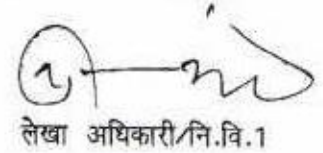 लेखा अधिकारी/नि.वि.1